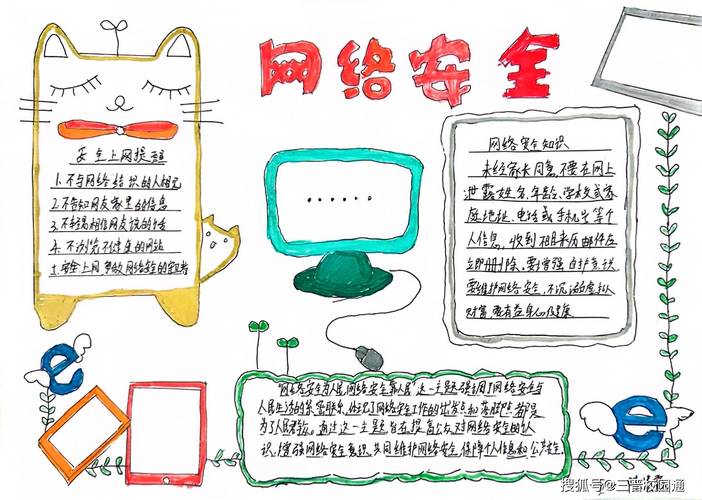 网络安全
安全上网提示
1.不与网络结识的人相见
2.不告知网友家里的信息
3.不轻易相信网友说的话
4.不浏览不健康的网站
5.安全上网 争做网络安全的
网络安全知识
未经家长同意,不要在网上
泄露姓名、年龄、学校或家
庭地址、电话或手机号等个
人信息,收到
立即删除,要增强自护意识
要维护网络安全,不沉溺虚拟
时空,要有益身心健康
......
"网络安全为人民,网络安全靠人民"这一主题强调了网络安全与
人民生活的紧密联系,体现了网络安全工作的出发点和落脚点都是
为了人民 通过这一主题旨在提高公众对网络安全的认
识,增强网络安全意识,共同维护网络安全,保障个人信息和公共安全
搜狐号@三晋校园通